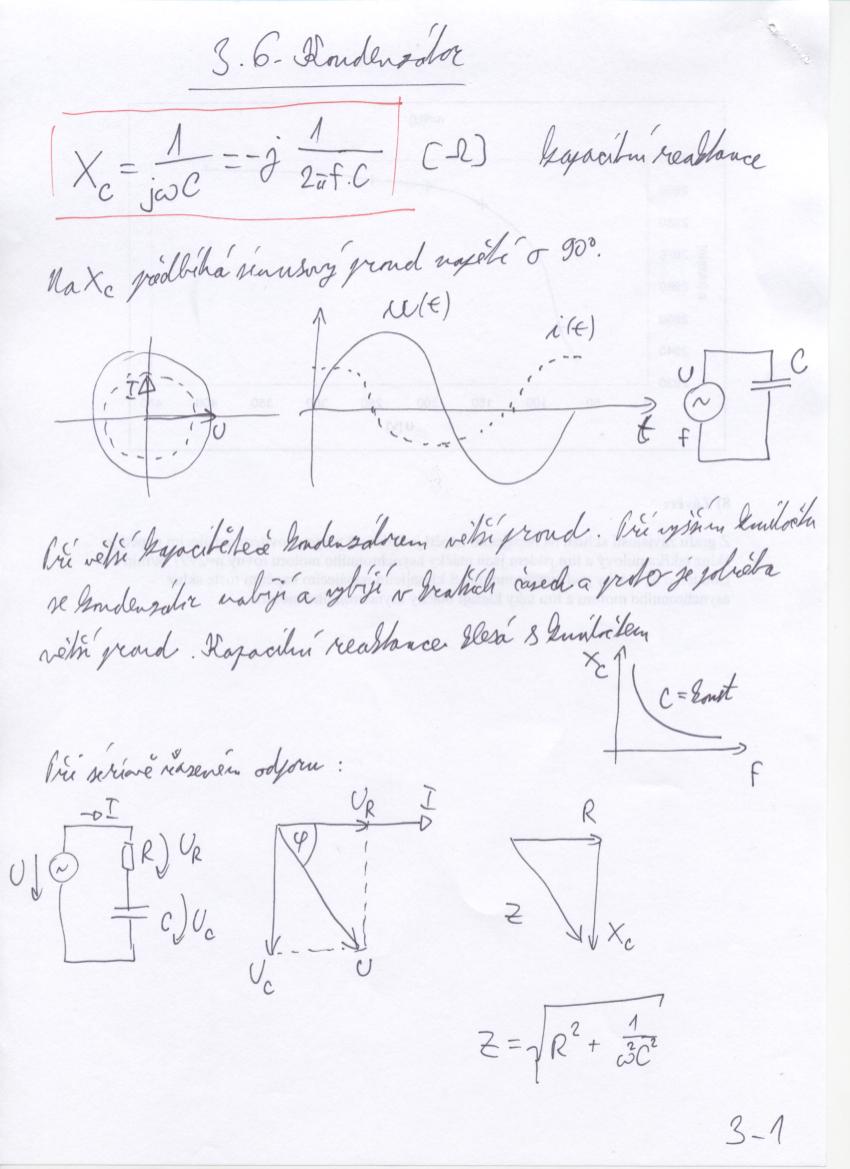 3.6. Kondenzátor
X_C = 1/jωC = -j 1/2πf.C [Ω] kapacitní reaktance
Na X_C předbíhá sinusový proud napětí o 90°.
u(t)
i(t)
I
U
t
U
f
C
Při větší kapacitě teče kondenzátorem větší proud. Při vyšším kmitočtu
se kondenzátor nabíjí a vybíjí v kratších časech a proto je potřeba
větší proud. Kapacitní reaktance klesá s kmitočtem
X_C
C = konst
f
Při sériově řazeném odporu:
I
U
R
U_R
C
U_C
U_R
I
φ
U_C
U
R
Z
X_C
Z = √(R² + 1/ω²C²)
3-1